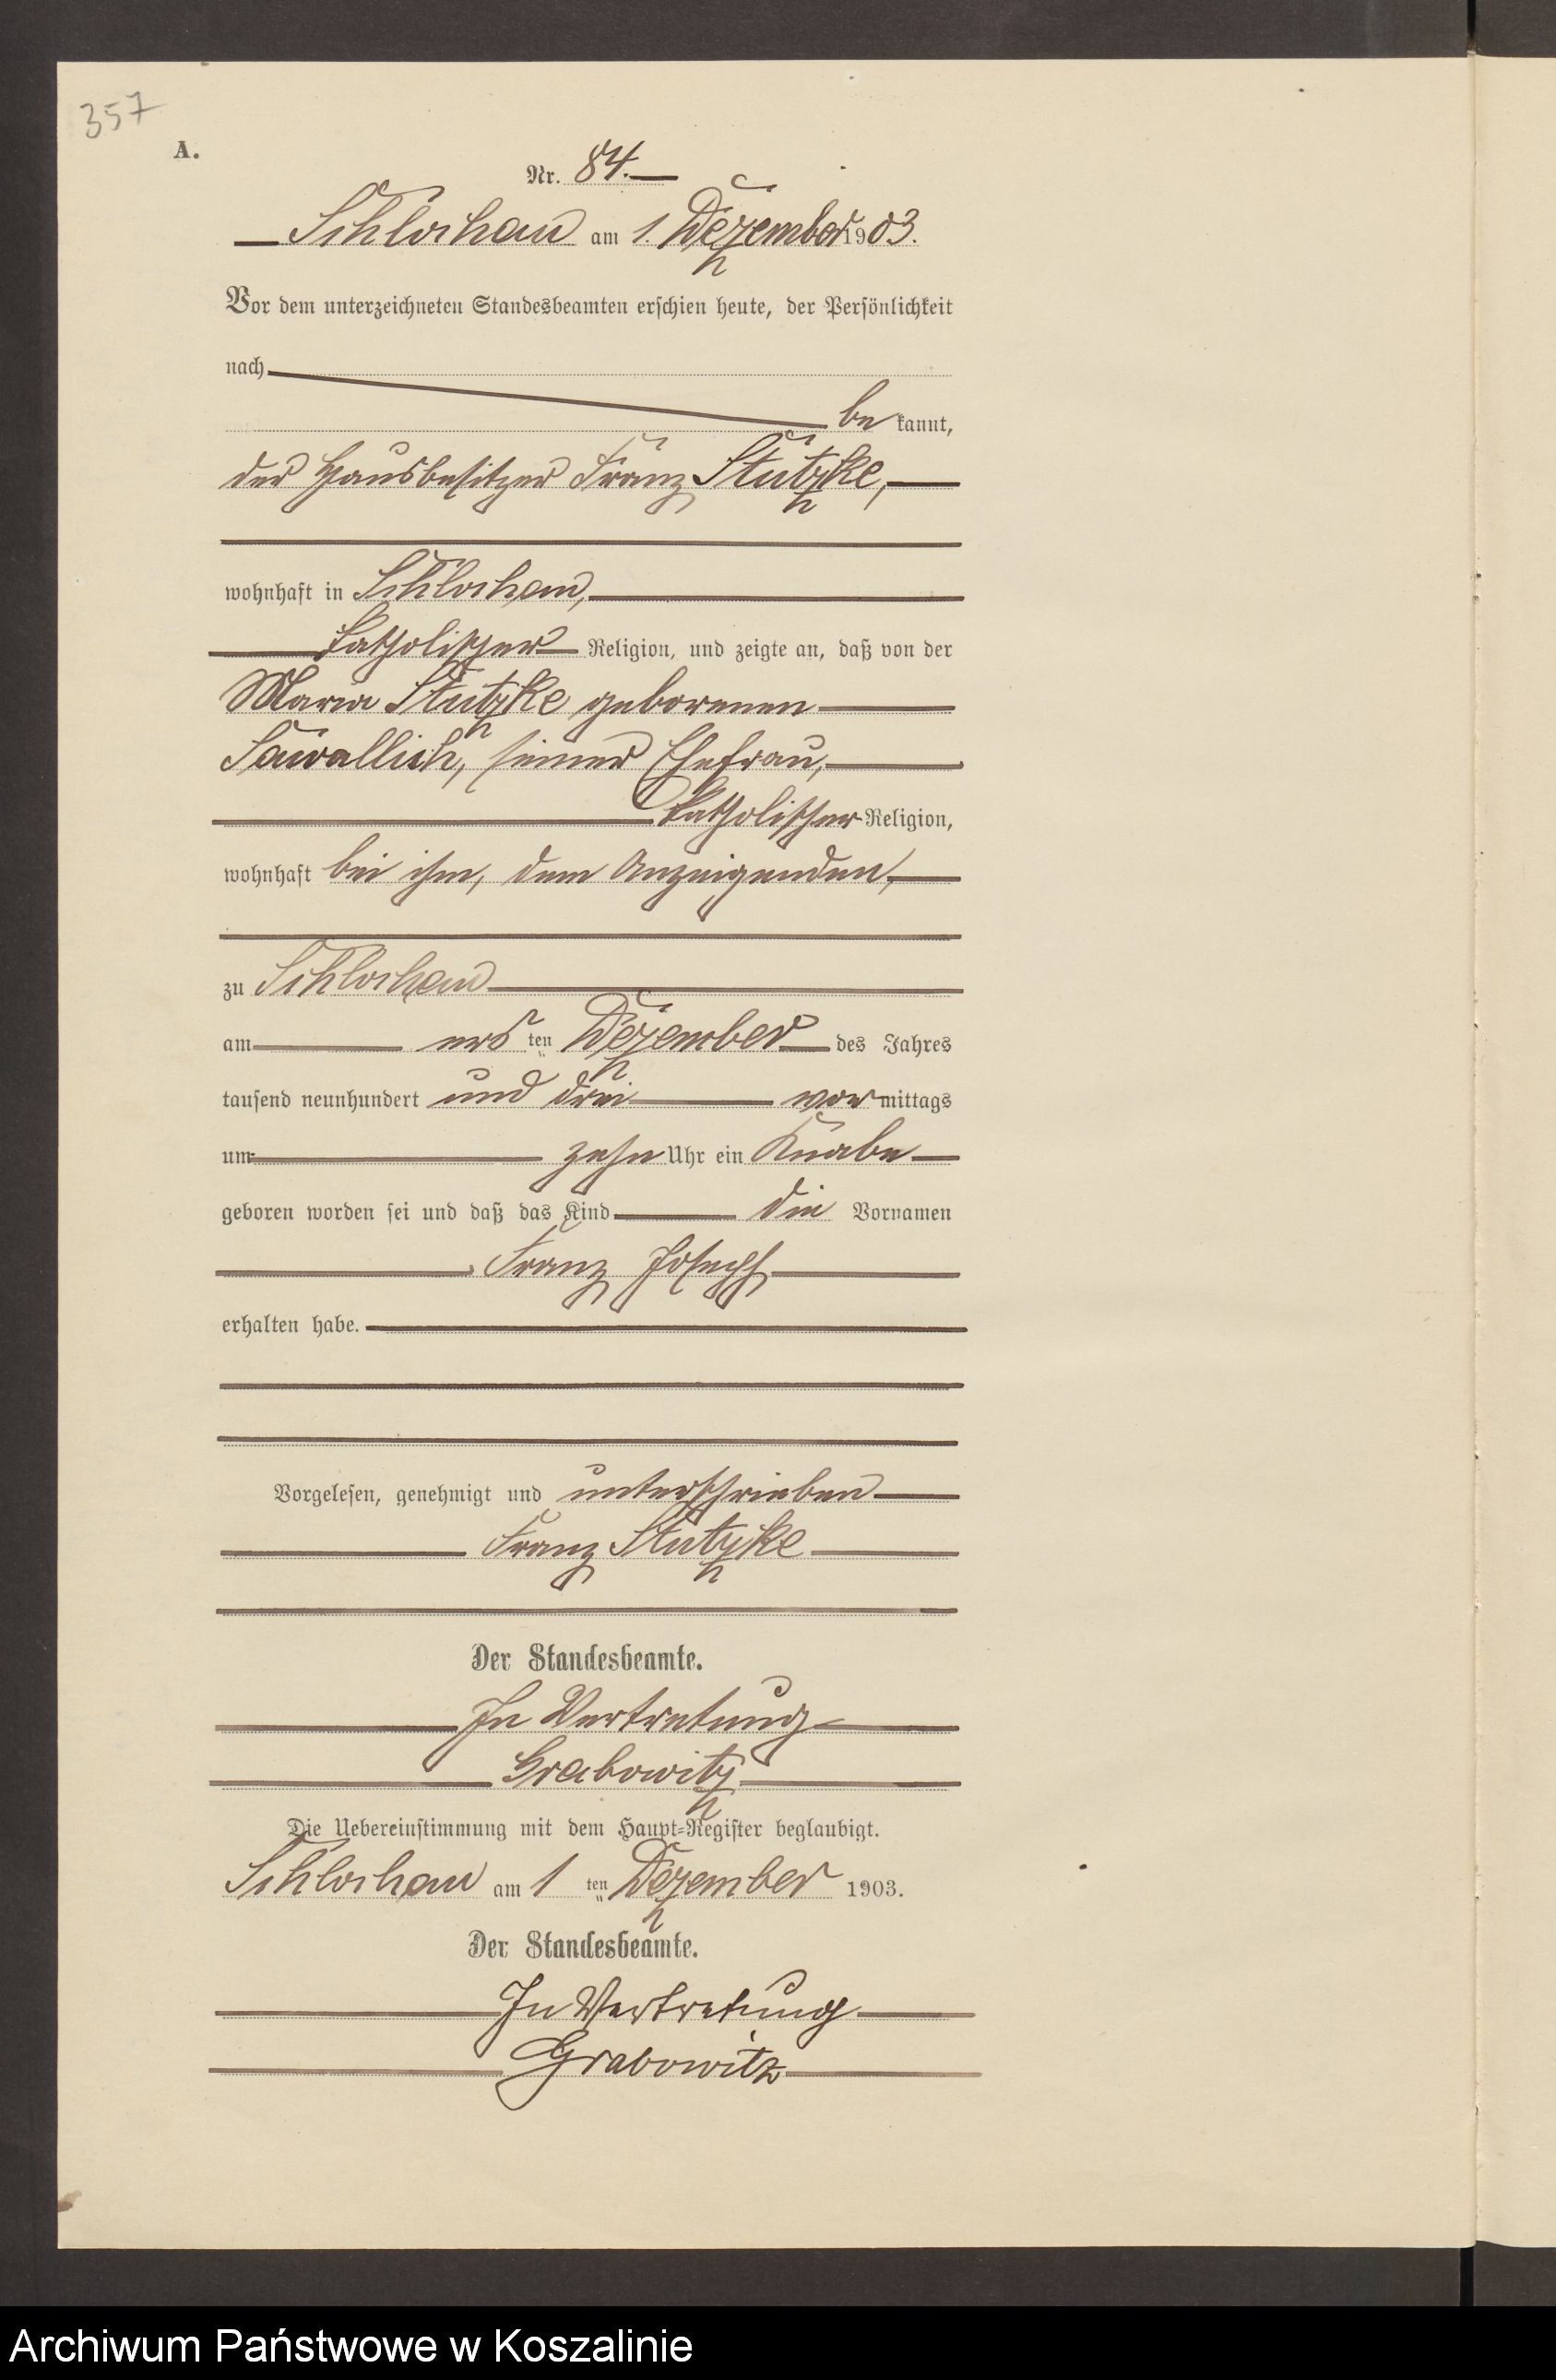 357
A.
Nr. 84.
Schlochau am 1. Dezember 1903.
Vor dem unterzeichneten Standesbeamten erschien heute, der Persönlichkeit
nach
be kannt,
der Hausbesitzer Franz Stutzke,
wohnhaft in Schlochau,
katholischer Religion, und zeigte an, daß von der
Maria Stutzke geborenen
Sawallich, seiner Ehefrau,
katholischer Religion,
wohnhaft bei ihm, dem Anzeigenden,
zu Schlochau
am ers ten Dezember des Jahres
tausend neunhundert und drei vor mittags
um zehn Uhr ein Knabe
geboren worden sei und daß das Kind die Vornamen
Franz Joseph
erhalten habe.
Vorgelesen, genehmigt und unterschrieben
Franz Stutzke
Der Standesbeamte.
In Vertretung
Grabowitz
Die Uebereinstimmung mit dem Haupt=Register beglaubigt.
Schlochau am 1 ten Dezember 1903.
Der Standesbeamte.
In Vertretung
Grabowitz
Archiwum Państwowe w Koszalinie